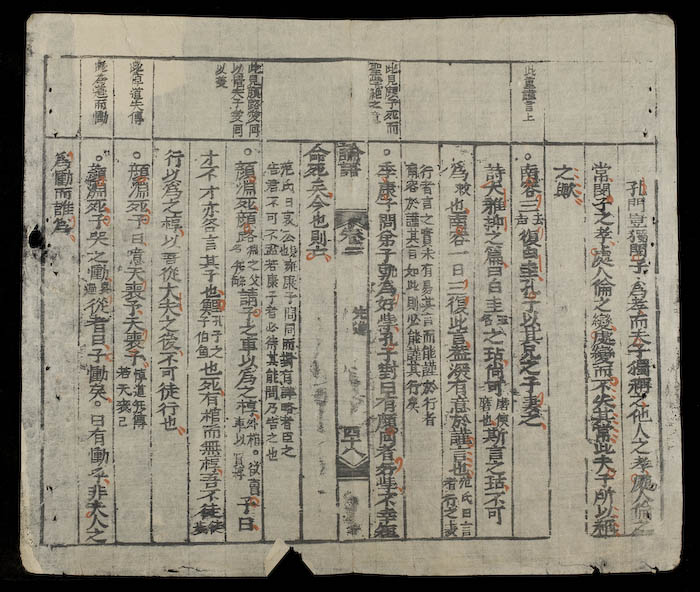 此重謹言上
此見顏子死而
聖學絕之意
此見顏路愛回
以情夫子愛回
以義
此卓道失傳
孔門豈獨閔子為孝而夫子獨稱之他人之孝處人倫之
常閔子之孝處人倫之變處變而不失其常此夫子所以稱
之歟
南容三去声復白圭孔子以其兄之子妻之
詩大雅抑之篇曰白圭之玷尚可磨也斯言之玷不可
為也南容一日三復此言蓋深有意於謹言也范氏曰言者行之表
行者言之實未有易其言而能謹於行者
南容欲謹其言如此則必能謹其行矣
季康子問弟子孰為好學孔子對曰有顏回者好學不幸短
論語
卷二
先進
四十八
命死矣今也則亡
范氏曰哀公康子問同而對有詳略者臣之
告君不可不盡若康子者必待其能問乃告之也
顏淵死顏路淵之父名無繇請子之車以為之椁外棺欲賣車以買椁子曰
才不才亦各言其子也鯉孔子之子伯魚也死有棺而無椁吾不徒
行以為之椁以吾從大夫之後不可徒行也
顏淵死子曰噫天喪予天喪予悼道無傳若天喪己
顏淵死子哭之慟從者曰子慟矣曰有慟乎非夫人之
為慟而誰為